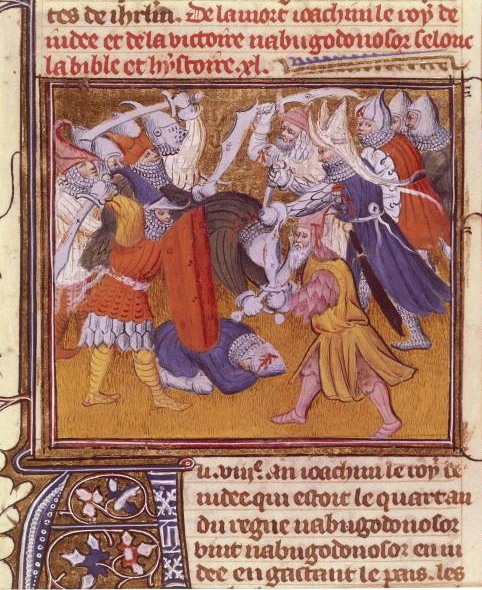 tes de ihrlm. De la mort ioachim le roy de
iudee et de la victoire nabugodonosor selonc
la bible et hystoire. xl.
u. viije. an ioachim le roy de
iudee. qui estoit le quart an
du regne nabugodonosor
vint nabugodonosor en iu
dee en gastant le pais. les